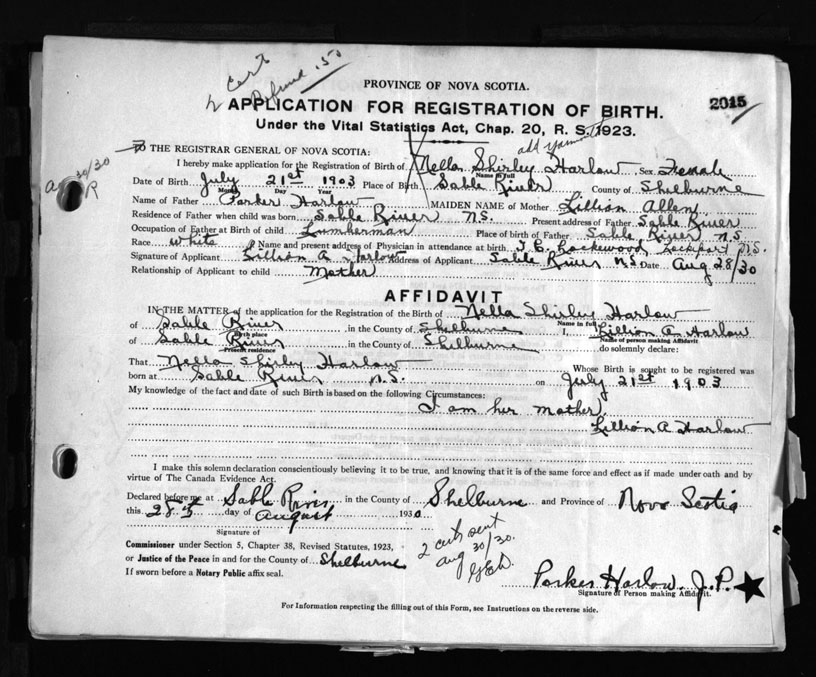 2 Cert
Refund .50
PROVINCE OF NOVA SCOTIA.
2015
APPLICATION FOR REGISTRATION OF BIRTH.
Under the Vital Statistics Act, Chap. 20, R. S. 1923.
TO THE REGISTRAR GENERAL OF NOVA SCOTIA:
30/30
R
I hereby make application for the Registration of Birth of Nella Shirley Harlow Sex Female
Name in full
Date of Birth July 21st 1903 Place of Birth Sable River County of Shelburne
Month Day Year
Name of Father Parker Harlow MAIDEN NAME of Mother Lillian Allen
Residence of Father when child was born Sable River N.S. Present address of Father Sable River
Occupation of Father at Birth of child Lumberman Place of birth of Father Sable River N.S.
Race White Name and present address of Physician in attendance at birth Lockwood, Lockport N.S.
Signature of Applicant Lillian A Harlow Address of Applicant Sable River N.S Date Aug 28/30
Relationship of Applicant to child Mother
AFFIDAVIT
IN THE MATTER of the application for the Registration of the Birth of Nella Shirley Harlow
Name in full
of Sable River in the County of Shelburne I, Lillian A Harlow
Birth place
Name of person making Affidavit
of Sable River in the County of Shelburne do solemnly declare:
Present residence
That Nella Shirley Harlow Whose Birth is sought to be registered was
born at Sable River N.S. on July 21st 1903
My knowledge of the fact and date of such Birth is based on the following Circumstances:
I am her mother
Lillian A Harlow
I make this solemn declaration conscientiously believing it to be true, and knowing that it is of the same force and effect as if made under oath and by
virtue of The Canada Evidence Act.
Declared before me at Sable River in the County of Shelburne and Province of Nova Scotia
this 28th day of August 1930
Signature of
Commissioner under Section 5, Chapter 38, Revised Statutes, 1923,
or Justice of the Peace in and for the County of Shelburne
If sworn before a Notary Public affix seal.
2 certs sent
aug 30/30.
Parker Harlow. J.P.
Signature of Person making Affidavit.
For Information respecting the filling out of this Form, see Instructions on the reverse side.